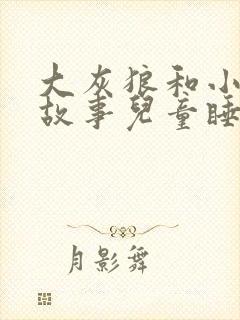 大灰狼和小
故事兒童睡
月影舞